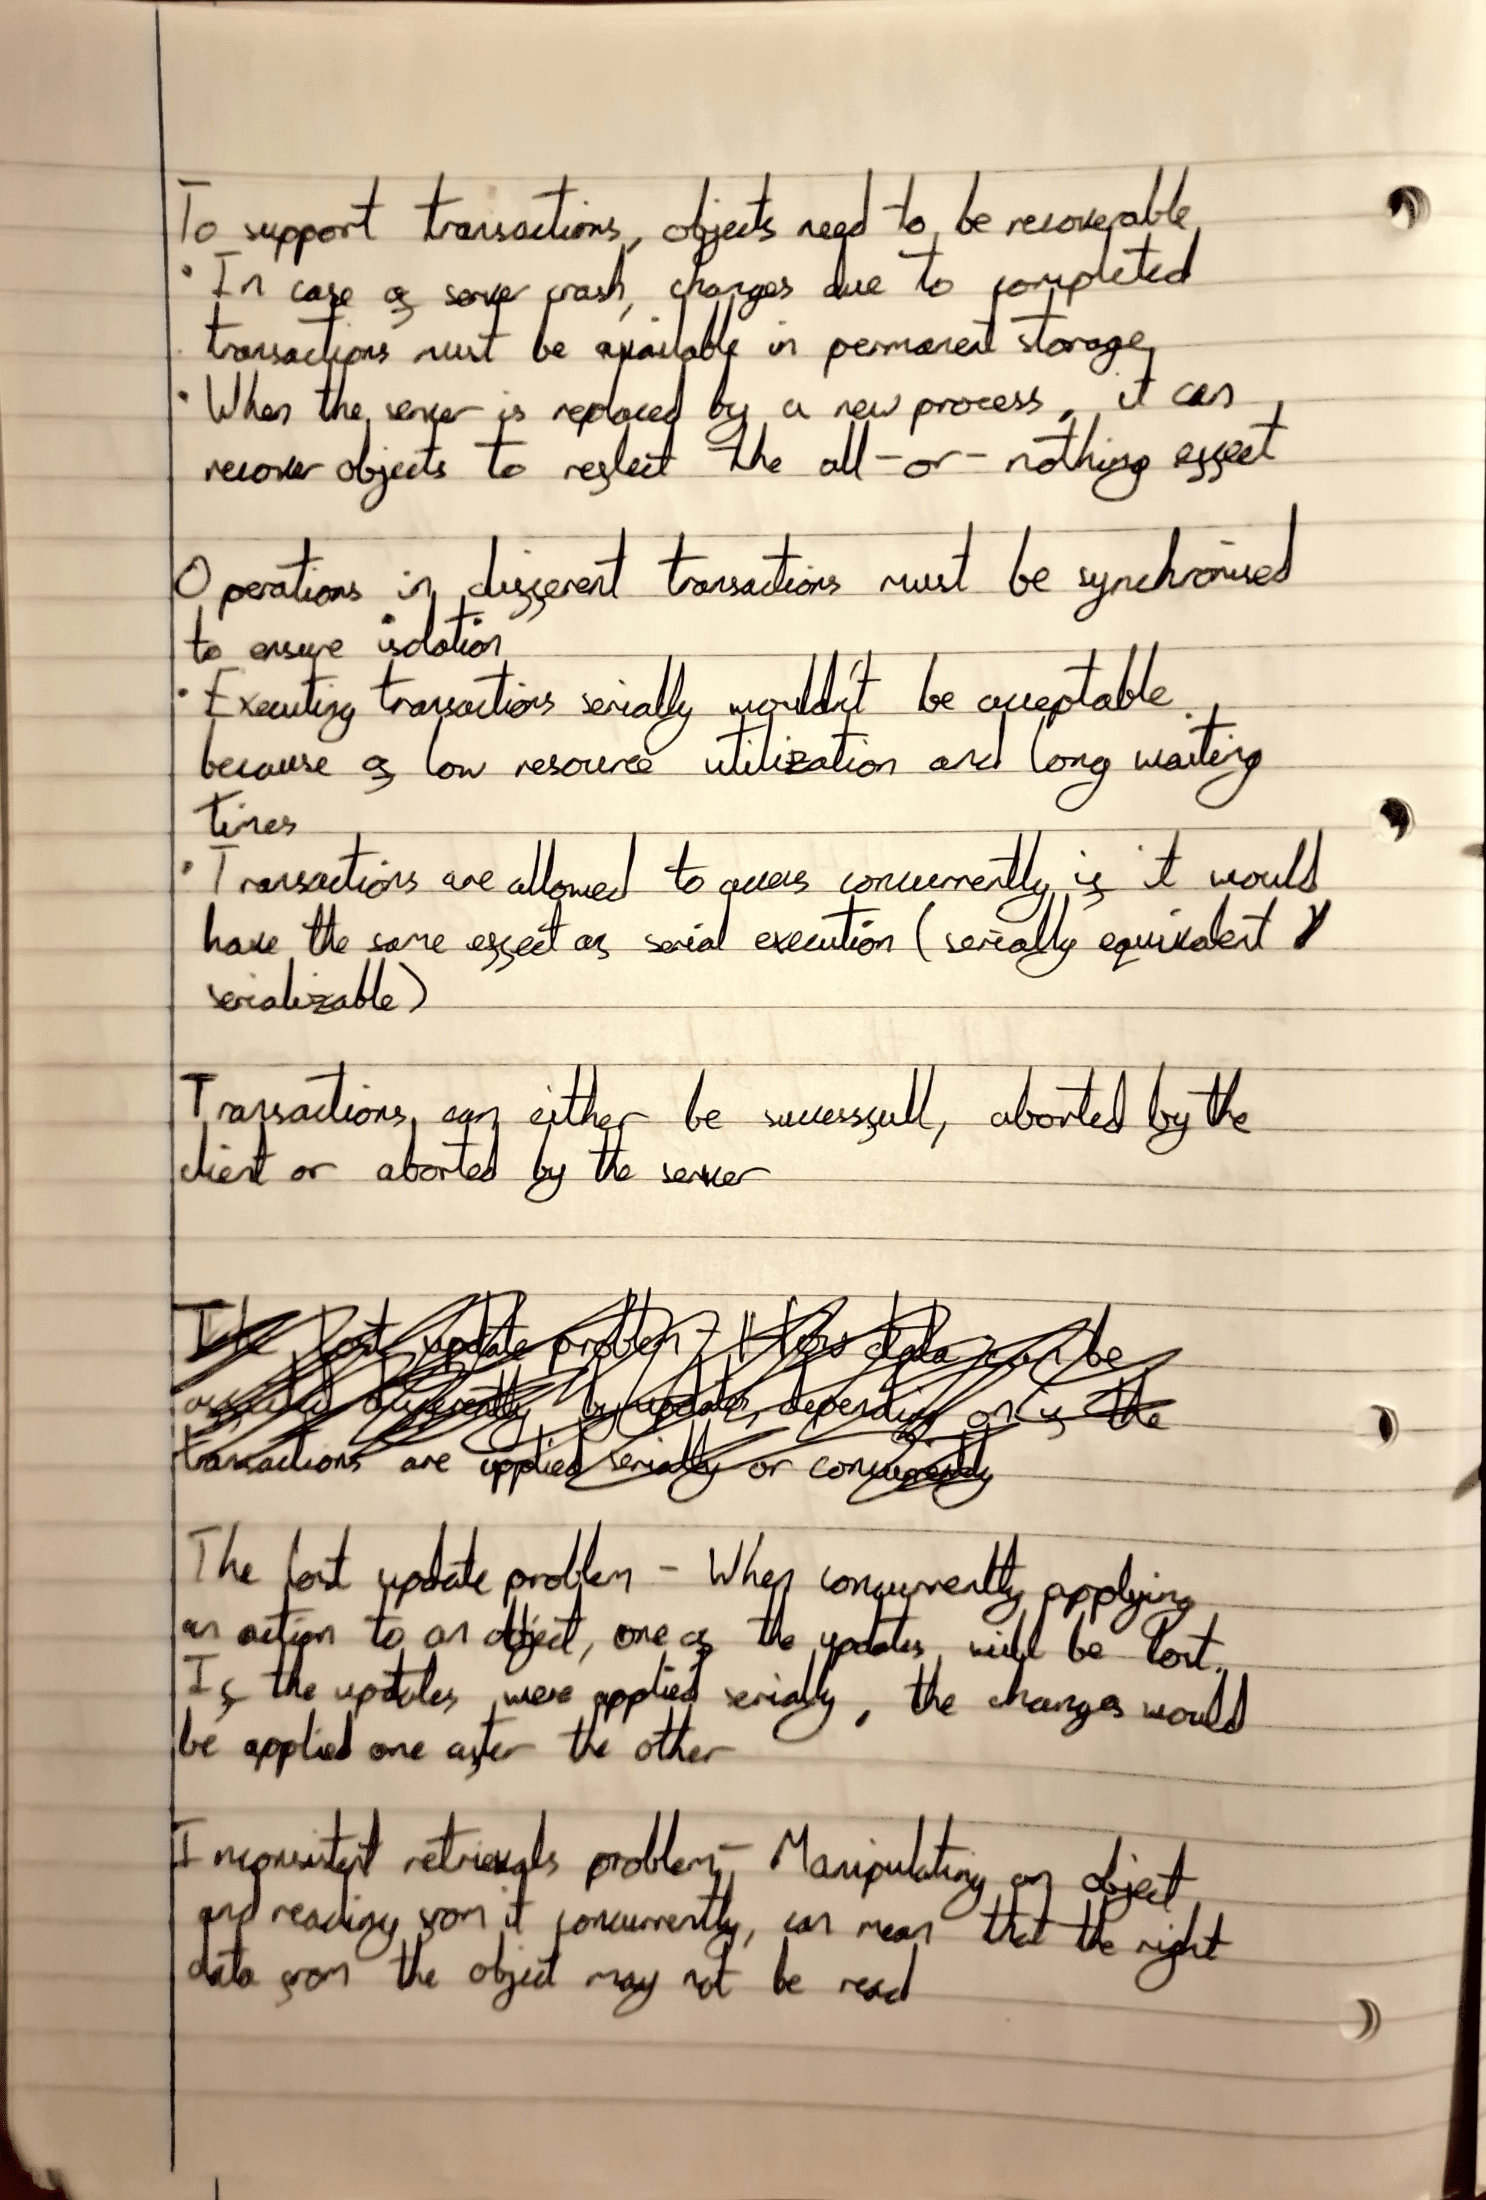 To support transactions, objects need to be recoverable
• In case of server crash, changes due to completed
transactions must be available in permanent storage
• When the server is replaced by a new process, it can
recover objects to reflect the all-or-nothing effect
Operations in different transactions must be synchronised
to ensure isolation
• Executing transactions serially wouldn't be acceptable
because of low resource utilization and long waiting
times
• Transactions are allowed to access concurrently if it would
have the same effect as serial execution (serially equivalent /
serializable)
Transactions can either be successfull, aborted by the
client or aborted by the server
The lost update problem - How data can be
differently by updates, depending on if the
transactions are applied serially or concurrently
The lost update problem - When concurrently applying
an action to an object, one of the updates will be lost.
If the updates were applied serially, the changes would
be applied one after the other
Inconsistent retrievals problem - Manipulating an object
and reading from it concurrently, can mean that the right
data from the object may not be read